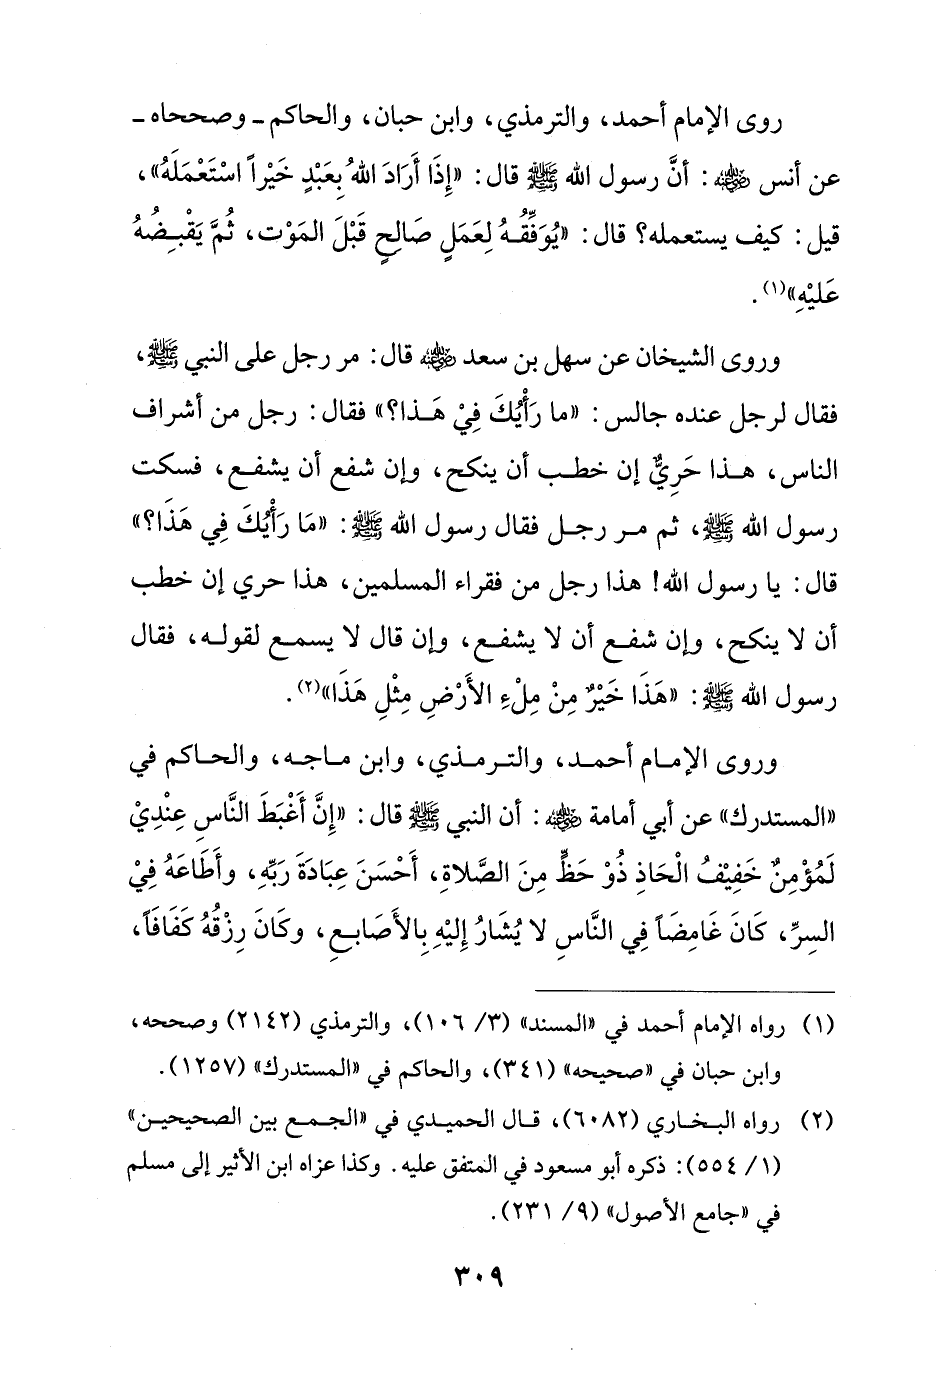 روى الإمام أحمد، والترمذي، وابن حبان، والحاكم ـ وصححاه ـ
عن أنس رضي الله عنه: أنَّ رسول الله ﷺ قال: «إِذَا أَرَادَ اللهُ بِعَبْدٍ خَيْراً اسْتَعْمَلَهُ»،
قيل: كيف يستعمله؟ قال: «يُوَفِّقُهُ لِعَمَلٍ صَالِحٍ قَبْلَ المَوْتِ، ثُمَّ يَقْبِضُهُ
عَلَيْهِ»(١).
وروى الشيخان عن سهل بن سعد رضي الله عنه قال: مر رجل على النبي ﷺ،
فقال لرجل عنده جالس: «ما رَأْيُكَ فِيْ هَذا؟» فقال: رجل من أشراف
الناس، هذا حَرِيٌّ إن خطب أن ينكح، وإن شفع أن يشفع، فسكت
رسول الله ﷺ، ثم مر رجل فقال رسول الله ﷺ: «مَا رَأْيُكَ فِي هَذَا؟»
قال: يا رسول الله! هذا رجل من فقراء المسلمين، هذا حري إن خطب
أن لا ينكح، وإن شفع أن لا يشفع، وإن قال لا يسمع لقوله، فقال
رسول الله ﷺ: «هَذَا خَيْرٌ مِنْ مِلْءِ الأَرْضِ مِثْلِ هَذَا»(٢).
وروى الإمام أحمد، والترمذي، وابن ماجه، والحاكم في
«المستدرك» عن أبي أمامة رضي الله عنه: أن النبي ﷺ قال: «إِنَّ أَغْبَطَ النَّاسِ عِنْدِيْ
لَمُؤْمِنٌ خَفِيْفُ الْحَاذِ ذُوْ حَظٍّ مِنَ الصَّلاةِ، أَحْسَنَ عِبَادَةَ رَبِّهِ، وأَطَاعَهُ فِيْ
السِرِّ، كَانَ غَامِضَاً فِي النَّاسِ لا يُشَارُ إِلَيْهِ بِالأَصَابعِ، وكَانَ رِزْقُهُ كَفَافَاً،
(١) رواه الإمام أحمد في «المسند» (٣/ ١٠٦)، والترمذي (٢١٤٢) وصححه،
وابن حبان في «صحيحه» (٣٤١)، والحاكم في «المستدرك» (١٢٥٧).
(٢) رواه البخاري (٦٠٨٢)، قال الحميدي في «الجمع بين الصحيحين»
(١/ ٥٥٤): ذكره أبو مسعود في المتفق عليه. وكذا عزاه ابن الأثير إلى مسلم
في «جامع الأصول» (٩/ ٢٣١).
٣٠٩